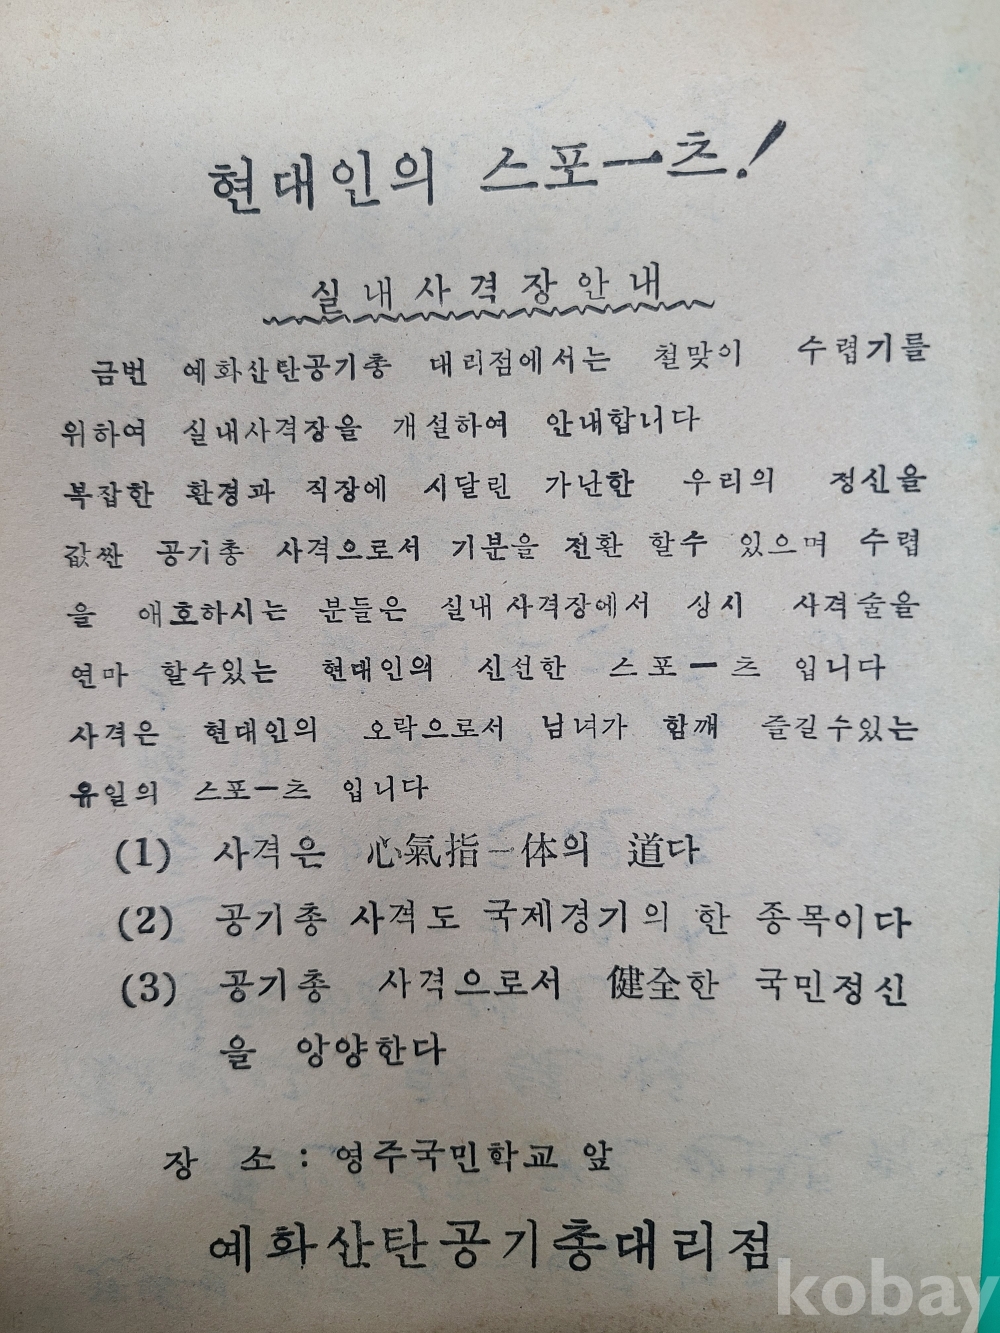 현대인의 스포ー츠!
실내사격장안내
금번 예화산탄공기총 대리점에서는 철맞이 수렵기를
위하여 실내사격장을 개설하여 안내합니다
복잡한 환경과 직장에 시달린 가난한 우리의 정신을
값싼 공기총 사격으로서 기분을 전환 할수 있으며 수렵
을 애호하시는 분들은 실내사격장에서 상시 사격술을
연마 할수있는 현대인의 신선한 스포ー츠 입니다
사격은 현대인의 오락으로서 남녀가 함깨 즐길수있는
유일의 스포ー츠 입니다
(1) 사격은 心氣指一体의 道다
(2) 공기총 사격도 국제경기의 한 종목이다
(3) 공기총 사격으로서 健全한 국민정신
을 앙양한다
장 소 : 영주국민학교 앞
예화산탄공기총대리점
kobay